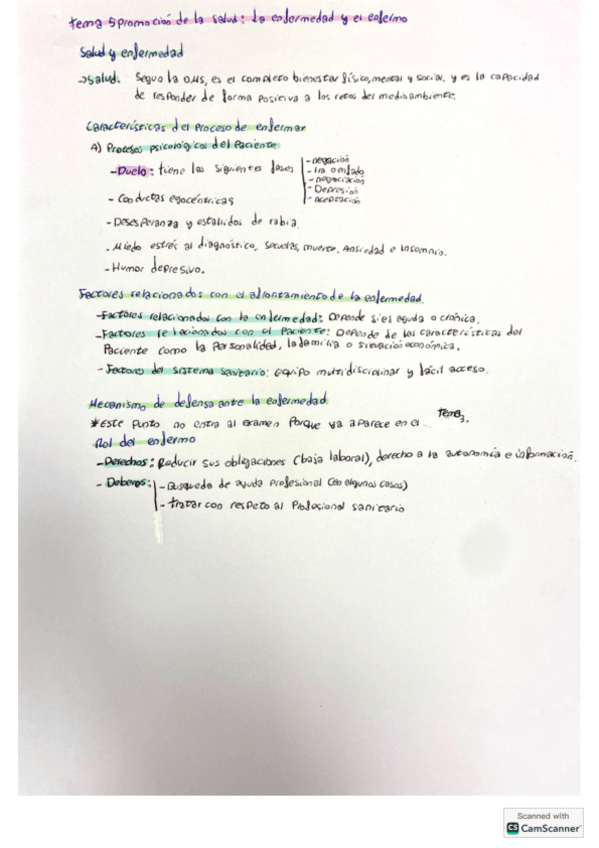 Tema 5 promoción de la salud: La enfermedad y el enfermo
Salud y enfermedad
→Salud. Según la OMS, es el completo bienestar físico, mental y social, y es la capacidad
de responder de forma positiva a los retos del medio ambiente.
Características del proceso de enfermar
A) Procesos psicológicos del Paciente
- Duelo: tiene las siguientes fases
- negación
- Ira o enfado
- negociación
- Depresión
- Aceptación
- Conductas egocéntricas
- Desesperanza y estallidos de rabia
- Miedo estrés al diagnóstico, secuelas, muerte. Ansiedad e insomnio.
- Humor depresivo.
Factores relacionados con el afrontamiento de la enfermedad.
- Factores relacionados con la enfermedad: Depende si es aguda o crónica.
- Factores relacionados con el Paciente: Depende de las características del
Paciente como la Personalidad, la familia o situación económica.
- Factores del sistema sanitario: equipo multidisciplinar y fácil acceso.
Mecanismo de defensa ante la enfermedad
* Este punto no entra al examen Porque ya aparece en el tema 3.
Rol del enfermo
- Derechos: Reducir sus obligaciones (baja laboral), derecho a la autonomía e información.
- Deberes:
- Búsqueda de ayuda Profesional (en algunos casos)
- tratar con respeto al Profesional sanitario
Scanned with
CS CamScanner